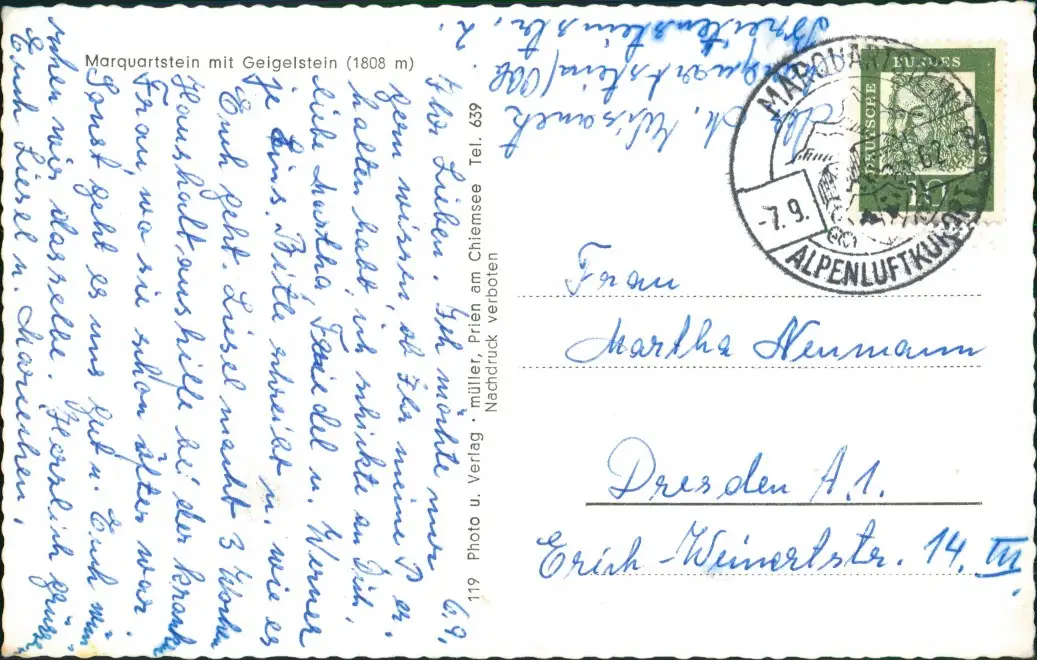 Marquartstein mit Geigelstein (1808 m)
6.9.
Ihr Lieben. Ich möchte nur
gern wissen, ob Ihr meine P er-
halten habt, ich schickte an Dich,
liebe Martha, Friedel u. Werner
je Eins. Bitte schreibt m. wie es
Euch geht. Liesel macht 3 Wochen
Haushaltaushilfe bei der kranken
Frau, wo sie schon öfter war.
Sonst geht es uns gut u. Euch wün-
schen wir dasselbe. Herzlich grüssen
Euch Liesel u. Mariechen.
119 Photo u. Verlag · müller, Prien am Chiemsee Tel. 639
Nachdruck verboten
Abs. M.
Marquartstein/Obb
Breitensteinstr. 2.
MARQUARTSTEIN
-7.9. 62
ALPENLUFTKURORT
DEUTSCHE BUNDESPOST
10
Frau
Martha Neumann
Dresden A.1.
Erich-Weinertstr. 14. III